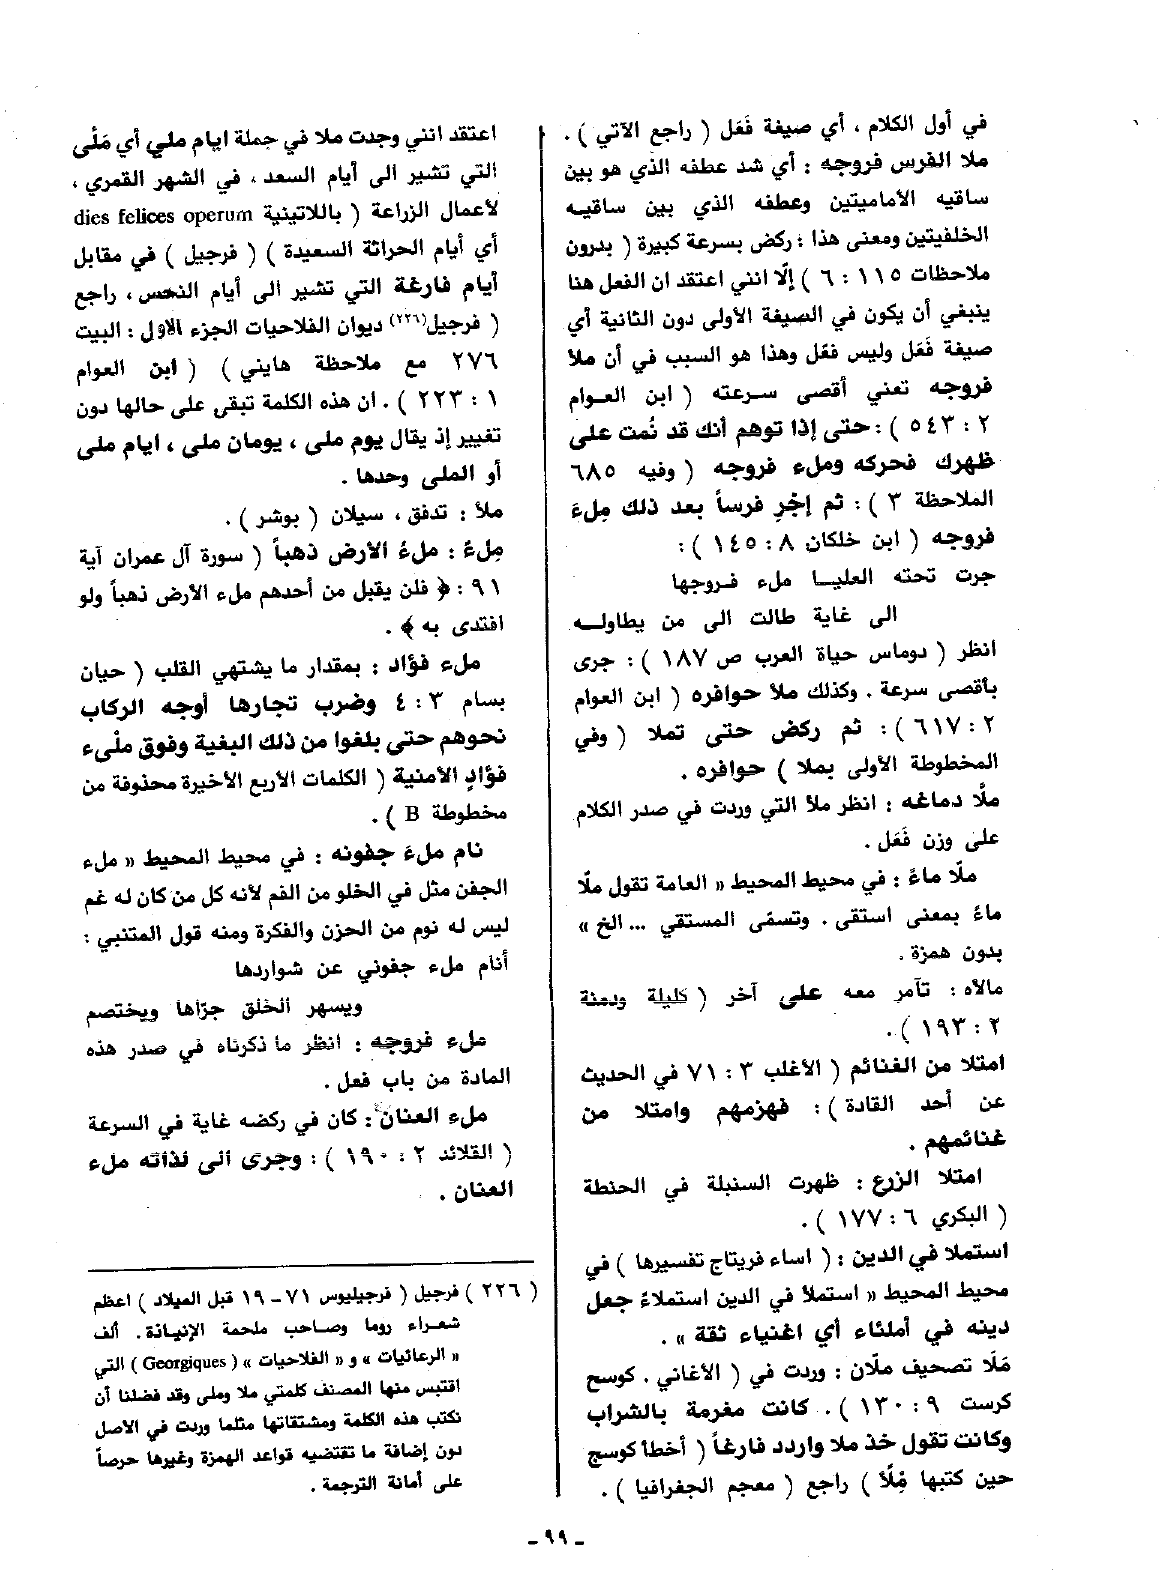 في أول الكلام ، أي صيغة فَعَل ( راجع الآتي ) .
ملا الفرس فروجه : أي شد عطفه الذي هو بين
ساقيه الأماميتين وعطفه الذي بين ساقيه
الخلفيتين ومعنى هذا : ركض بسرعة كبيرة ( بدرون
ملاحظات ١١٥ : ٦ ) إلّا انني اعتقد ان الفعل هنا
ينبغي أن يكون في الصيغة الأولى دون الثانية أي
صيغة فَعَل وليس فعّل وهذا هو السبب في أن ملأ
فروجه تعني أقصى سرعته ( ابن العوام
٢ : ٥٤٣ ) : حتى إذا توهم أنك قد نُمت على
ظهرك فحركه وملء فروجه ( وفيه ٦٨٥
الملاحظة ٣ ) : ثم إجْرِ فرساً بعد ذلك مِلءَ
فروجه ( ابن خلكان ٨ : ١٤٥ ) :
جرت تحته العليا ملء فروجها
الى غاية طالت الى من يطاوله
انظر ( دوماس حياة العرب ص ١٨٧ ) : جرى
بأقصى سرعة . وكذلك ملأ حوافره ( ابن العوام
٢ : ٦١٧ ) : ثم ركض حتى تملا ( وفي
المخطوطة الأولى بملا ) حوافره .
ملّا دماغه : انظر ملأ التي وردت في صدر الكلام
على وزن فَعَل .
ملّا ماءً : في محيط المحيط « العامة تقول ملّا
ماءً بمعنى استقى . وتسمّى المستقي ... الخ »
بدون همزة .
مالاه : تآمر معه على آخر ( كليلة ودمنة
٢ : ١٩٣ ) .
امتلا من الغنائم ( الأغلب ٣ : ٧١ في الحديث
عن أحد القادة ) : فهزمهم وامتلا من
غنائمهم .
امتلا الزرع : ظهرت السنبلة في الحنطة
( البكري ٦ : ١٧٧ ) .
استملا في الدين : ( اساء فريتاج تفسيرها ) في
محيط المحيط « استملأ في الدين استملاءً جعل
دينه في أملئاء أي اغنياء ثقة » .
مَلَا تصحيف ملّان : وردت في ( الأغاني . كوسج
كرست ٩ : ١٣٠ ) . كانت مغرمة بالشراب
وكانت تقول خذ ملا واردد فارغاً ( أخطأ كوسج
حين كتبها مُِلّاً ) راجع ( معجم الجغرافيا ) .
اعتقد انني وجدت ملا في جملة ايام ملي أي مَلْى
التي تشير الى أيام السعد ، في الشهر القمري ،
لأعمال الزراعة ( باللاتينية dies felices operum
أي أيام الحراثة السعيدة ) ( فرجيل ) في مقابل
أيام فارغة التي تشير الى أيام النحس ، راجع
( فرجيل(٢٢٦) ديوان الفلاحيات الجزء الأول : البيت
٢٧٦ مع ملاحظة هايني ) ( ابن العوام
١ : ٢٢٣ ) . ان هذه الكلمة تبقى على حالها دون
تغيير إذ يقال يوم ملى ، يومان ملى ، ايام ملى
أو الملى وحدها .
ملأ : تدفق ، سيلان ( بوشر ) .
مِلءُ : ملءُ الأرض ذهباً ( سورة آل عمران آية
٩١ : ﴿ فلن يقبل من أحدهم ملء الأرض ذهباً ولو
افتدى به ﴾ .
ملء فؤاد : بمقدار ما يشتهي القلب ( حيان
بسام ٣ : ٤ وضرب تجارها أوجه الركاب
نحوهم حتى بلغوا من ذلك البغية وفوق ملْىء
فؤادِ الأمنية ( الكلمات الأربع الأخيرة محذوفة من
مخطوطة B ) .
نام ملءَ جفونه : في محيط المحيط « ملء
الجفن مثل في الخلو من الفم لأنه كل من كان له غم
ليس له نوم من الحزن والفكرة ومنه قول المتنبي :
أنام ملء جفوني عن شواردها
ويسهر الخلق جرّاها ويختصم
ملء فروجه : انظر ما ذكرناه في صدر هذه
المادة من باب فعل .
ملء العنان : كان في ركضه غاية في السرعة
( القلائد ٢ : ١٩٠ ) : وجرى الى لذاته ملء
العنان .
( ٢٢٦ ) فرجيل ( فرجيليوس ٧١ - ١٩ قبل الميلاد ) اعظم
شعراء روما وصاحب ملحمة الإنيادة . ألف
« الرعائيات » و « الفلاحيات » ( Georgiques ) التي
اقتبس منها المصنف كلمتي ملا وملى وقد فضلنا أن
نكتب هذه الكلمة ومشتقاتها مثلما وردت في الأصل
دون إضافة ما تقتضيه قواعد الهمزة وغيرها حرصاً
على أمانة الترجمة .
- ٩٩ -